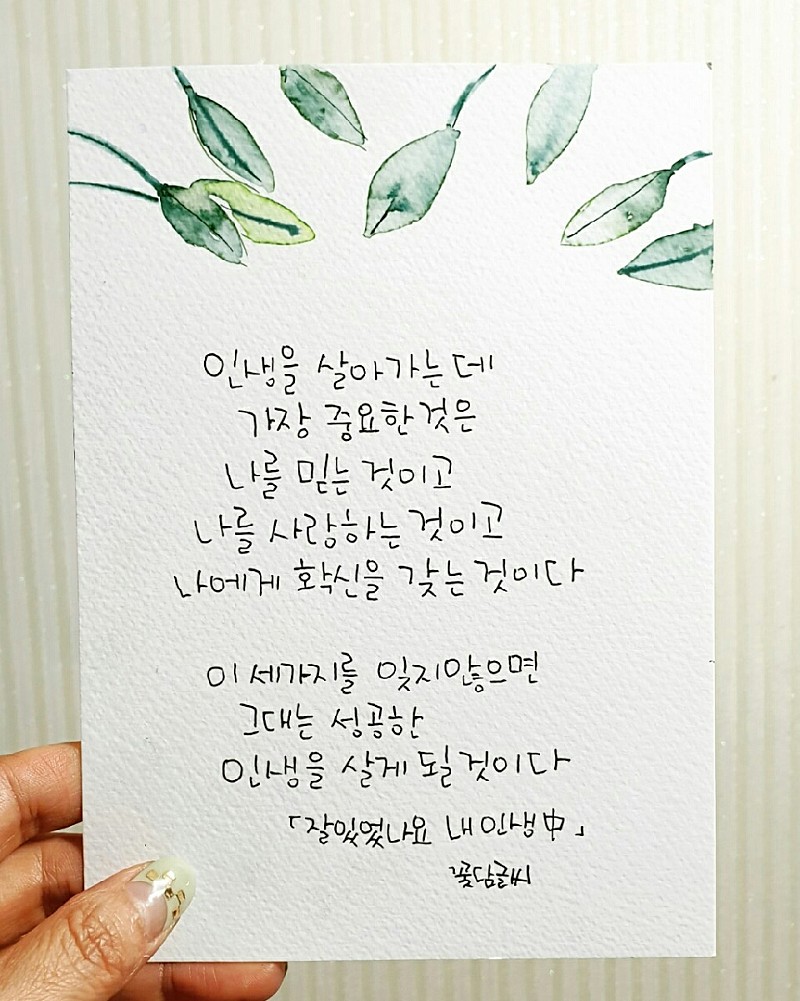 인생을 살아가는데
가장 중요한것은
나를 믿는 것이고
나를 사랑하는 것이고
나에게 확신을 갖는것이다
이 세가지를 잊지않으면
그대는 성공한
인생을 살게 될것이다
「잘있었나요 내인생中」
꽃담글씨